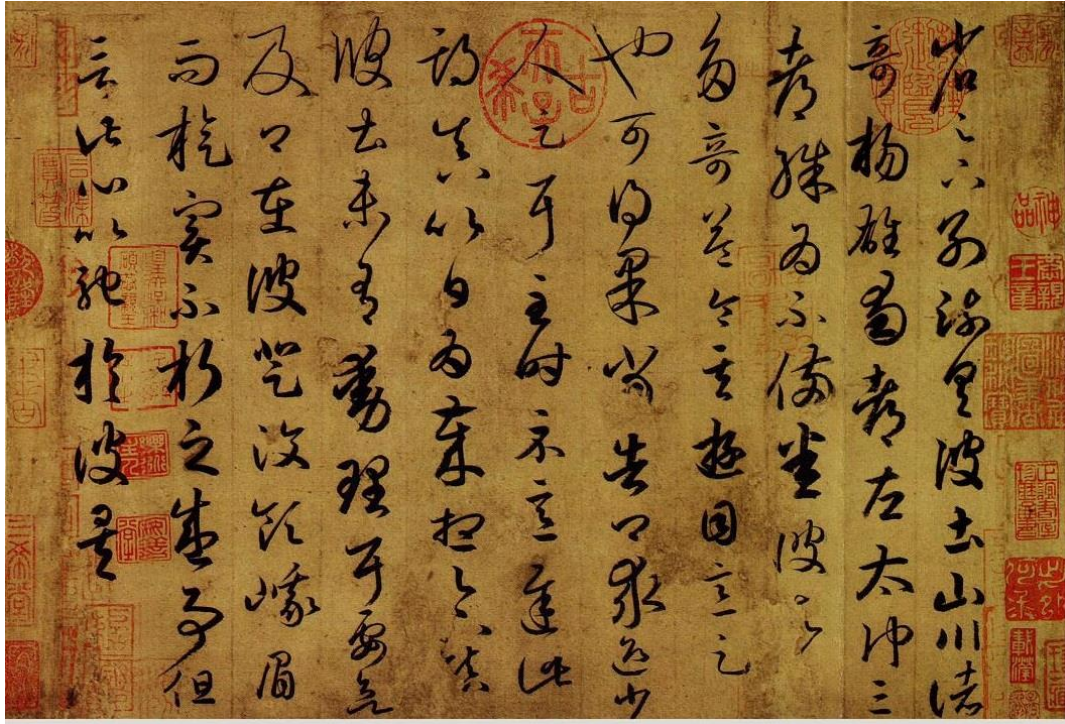 省足下別疏具彼土山川諸
奇楊雄蜀都左太沖三
都殊為不備悉彼故
多奇益令其遊目意足
也可得果當告卿求迎少
人足耳至時示意遲此
期真以日為歲想足下鎮
彼土未有動理耳要欲
及卿在彼登汶領峨眉
而旋實不朽之盛事但
言此心以馳於彼矣
古希天子
神品